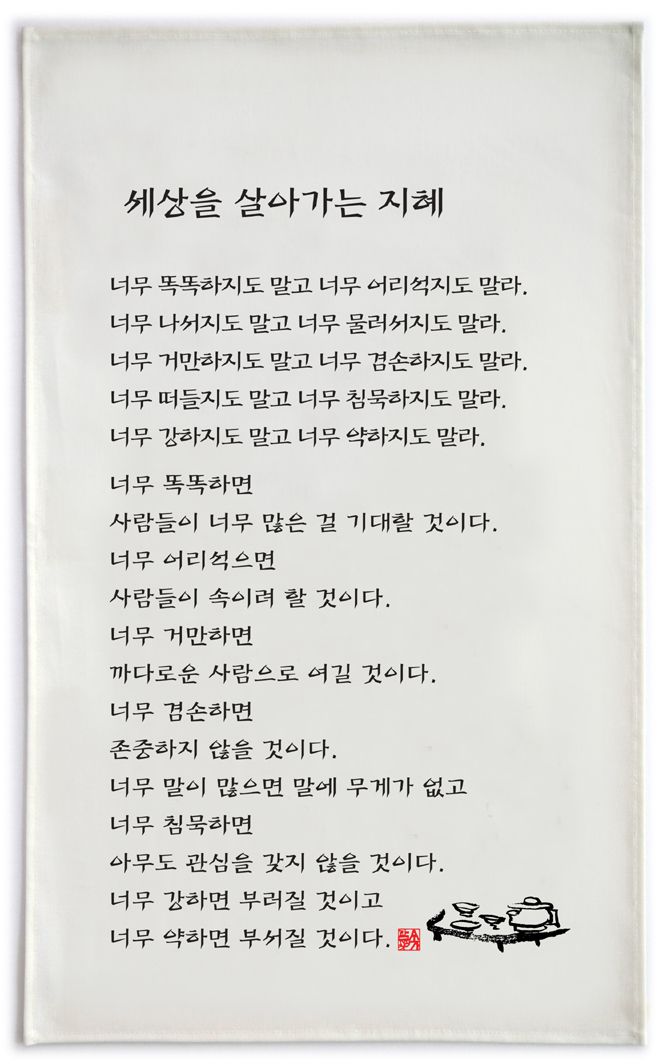 세상을 살아가는 지혜
너무 똑똑하지도 말고 너무 어리석지도 말라.
너무 나서지도 말고 너무 물러서지도 말라.
너무 거만하지도 말고 너무 겸손하지도 말라.
너무 떠들지도 말고 너무 침묵하지도 말라.
너무 강하지도 말고 너무 약하지도 말라.
너무 똑똑하면
사람들이 너무 많은 걸 기대할 것이다.
너무 어리석으면
사람들이 속이려 할 것이다.
너무 거만하면
까다로운 사람으로 여길 것이다.
너무 겸손하면
존중하지 않을 것이다.
너무 말이 많으면 말에 무게가 없고
너무 침묵하면
아무도 관심을 갖지 않을 것이다.
너무 강하면 부러질 것이고
너무 약하면 부서질 것이다.